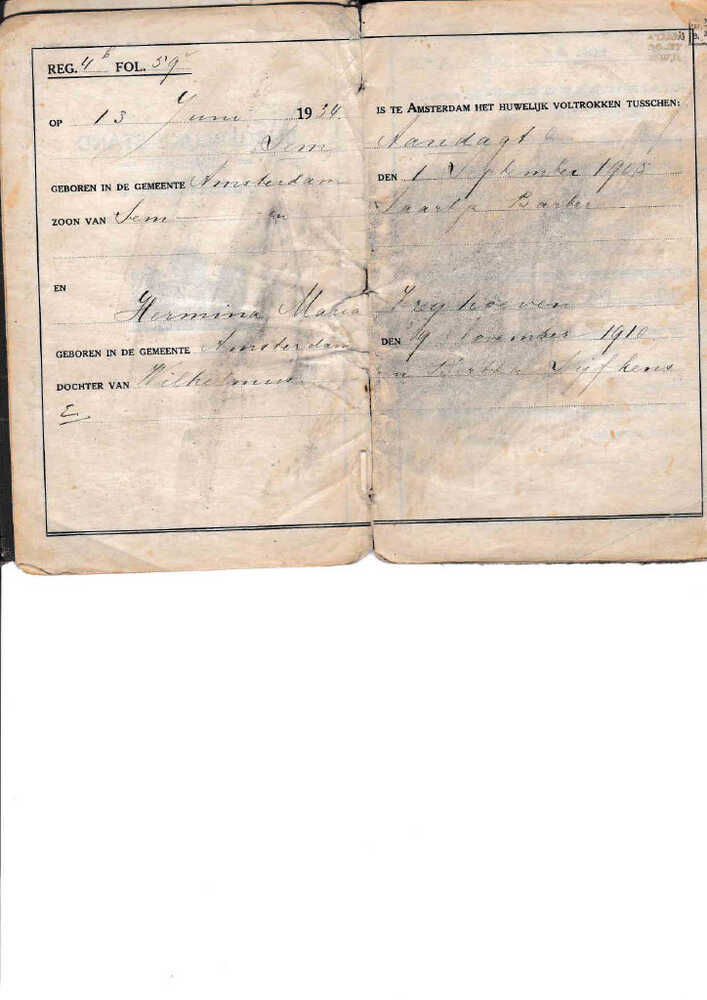 REG. 4 b FOL. 59 v
OP 13 Juni 1934 IS TE AMSTERDAM HET HUWELIJK VOLTROKKEN TUSSCHEN:
Sem Aandagt
GEBOREN IN DE GEMEENTE Amsterdam DEN 1 September 1905
ZOON VAN Sem en Saartje Barber
EN
Hermina Maria
GEBOREN IN DE GEMEENTE Amsterdam DEN 19 November 1910
DOCHTER VAN Wilhelmus en